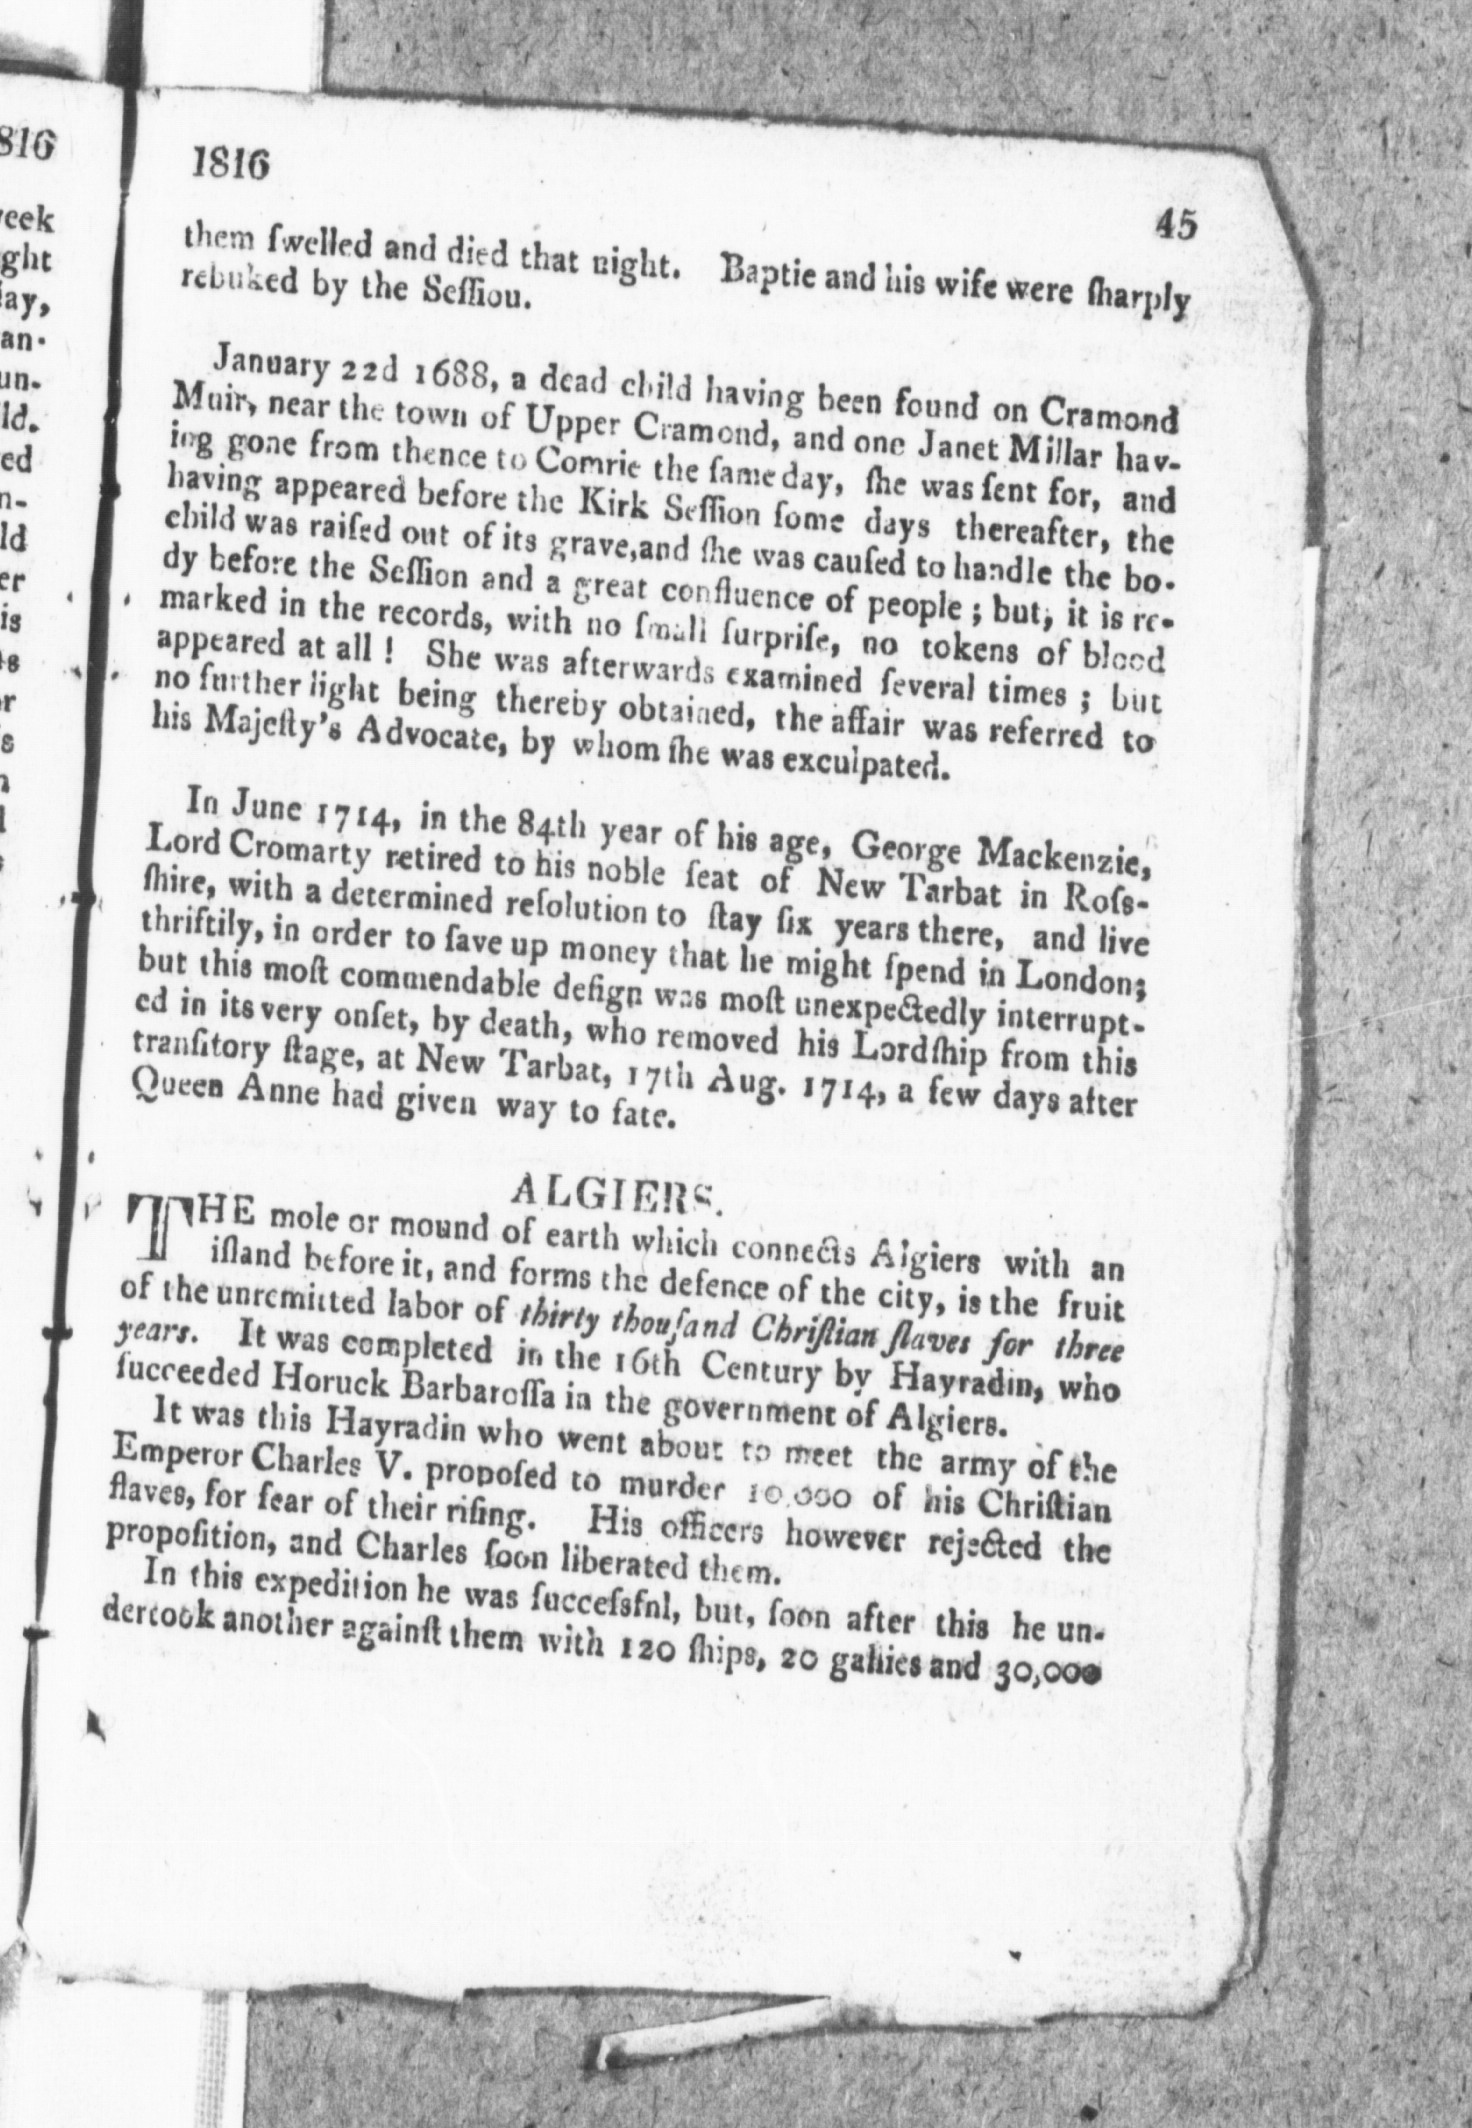 816
eek
ght
ay,
an-
un-
ld.
ed
n-
ld
er
is
s
or
s
1816
45
them ſwelled and died that night. Baptie and his wife were ſharply
rebuked by the Seſſiou.
January 22d 1688, a dead child having been found on Cramond
Muir, near the town of Upper Cramond, and one Janet Millar hav-
ing gone from thence to Comrie the ſame day, ſhe was ſent for, and
having appeared before the Kirk Seſſion ſome days thereafter, the
child was raiſed out of its grave,and ſhe was cauſed to handle the bo-
dy before the Seſſion and a great confluence of people ; but, it is re-
marked in the records, with no ſmall ſurpriſe, no tokens of blood
appeared at all ! She was afterwards examined ſeveral times ; but
no further light being thereby obtained, the affair was referred to
his Majeſty's Advocate, by whom ſhe was exculpated.
In June 1714, in the 84th year of his age, George Mackenzie,
Lord Cromarty retired to his noble ſeat of New Tarbat in Roſs-
ſhire, with a determined reſolution to ſtay ſix years there, and live
thriftily, in order to ſave up money that he might ſpend in London;
but this moſt commendable deſign was moſt unexpectedly interrupt-
ed in its very onſet, by death, who removed his Lordſhip from this
tranſitory ſtage, at New Tarbat, 17th Aug. 1714, a few days after
Queen Anne had given way to fate.
ALGIERS.
THE mole or mound of earth which connects Algiers with an
iſland before it, and forms the defence of the city, is the fruit
of the unremitted labor of thirty thouſand Chriſtian ſlaves for three
years. It was completed in the 16th Century by Hayradin, who
ſucceeded Horuck Barbaroſſa in the government of Algiers.
It was this Hayradin who went about to meet the army of the
Emperor Charles V. propoſed to murder 10,000 of his Chriſtian
ſlaves, for fear of their riſing. His officers however rejected the
propoſition, and Charles ſoon liberated them.
In this expedition he was ſucceſsfnl, but, ſoon after this he un-
dertook another againſt them with 120 ſhips, 20 gallies and 30,000